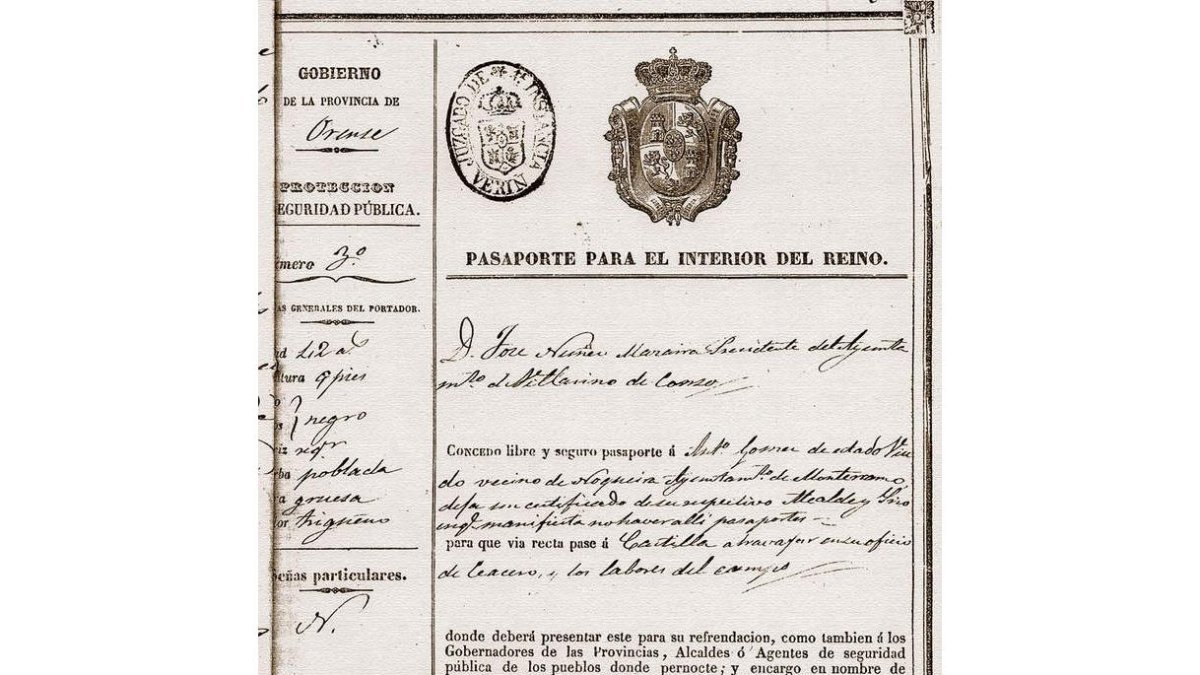 GOBIERNO
DE LA PROVINCIA DE
Orense
PROTECCION
SEGURIDAD PÚBLICA.
mero 3º
AS GENERALES DEL PORTADOR.
ad 42 aˢ
tura 9 pies
negro
iz regʳ
ba poblada
a gruesa
or trigueño
eñas particulares.
N.
JUZGADO DE 1ª INSTANCIA
VERIN
PASAPORTE PARA EL INTERIOR DEL REINO.
D. Jose Nuñez Precidente del Ayunta
mᵗᵒ de Villarino de Conso
CONCEDO libre y seguro pasaporte á Antº Gomez de estado Viu
do vecino de Nogueira Ayuntamᵗᵒ de Monterramo
deja un certificado de su respectivo Alcalde y
manifiesta no haver alli pasaportes
para que via recta pase á Castilla a travajar en su oficio
de y los labores del campo
donde deberá presentar este para su refrendacion, como tambien á los
Gobernadores de las Provincias, Alcaldes ó Agentes de seguridad
pública de los pueblos donde pernocte; y encargo en nombre de